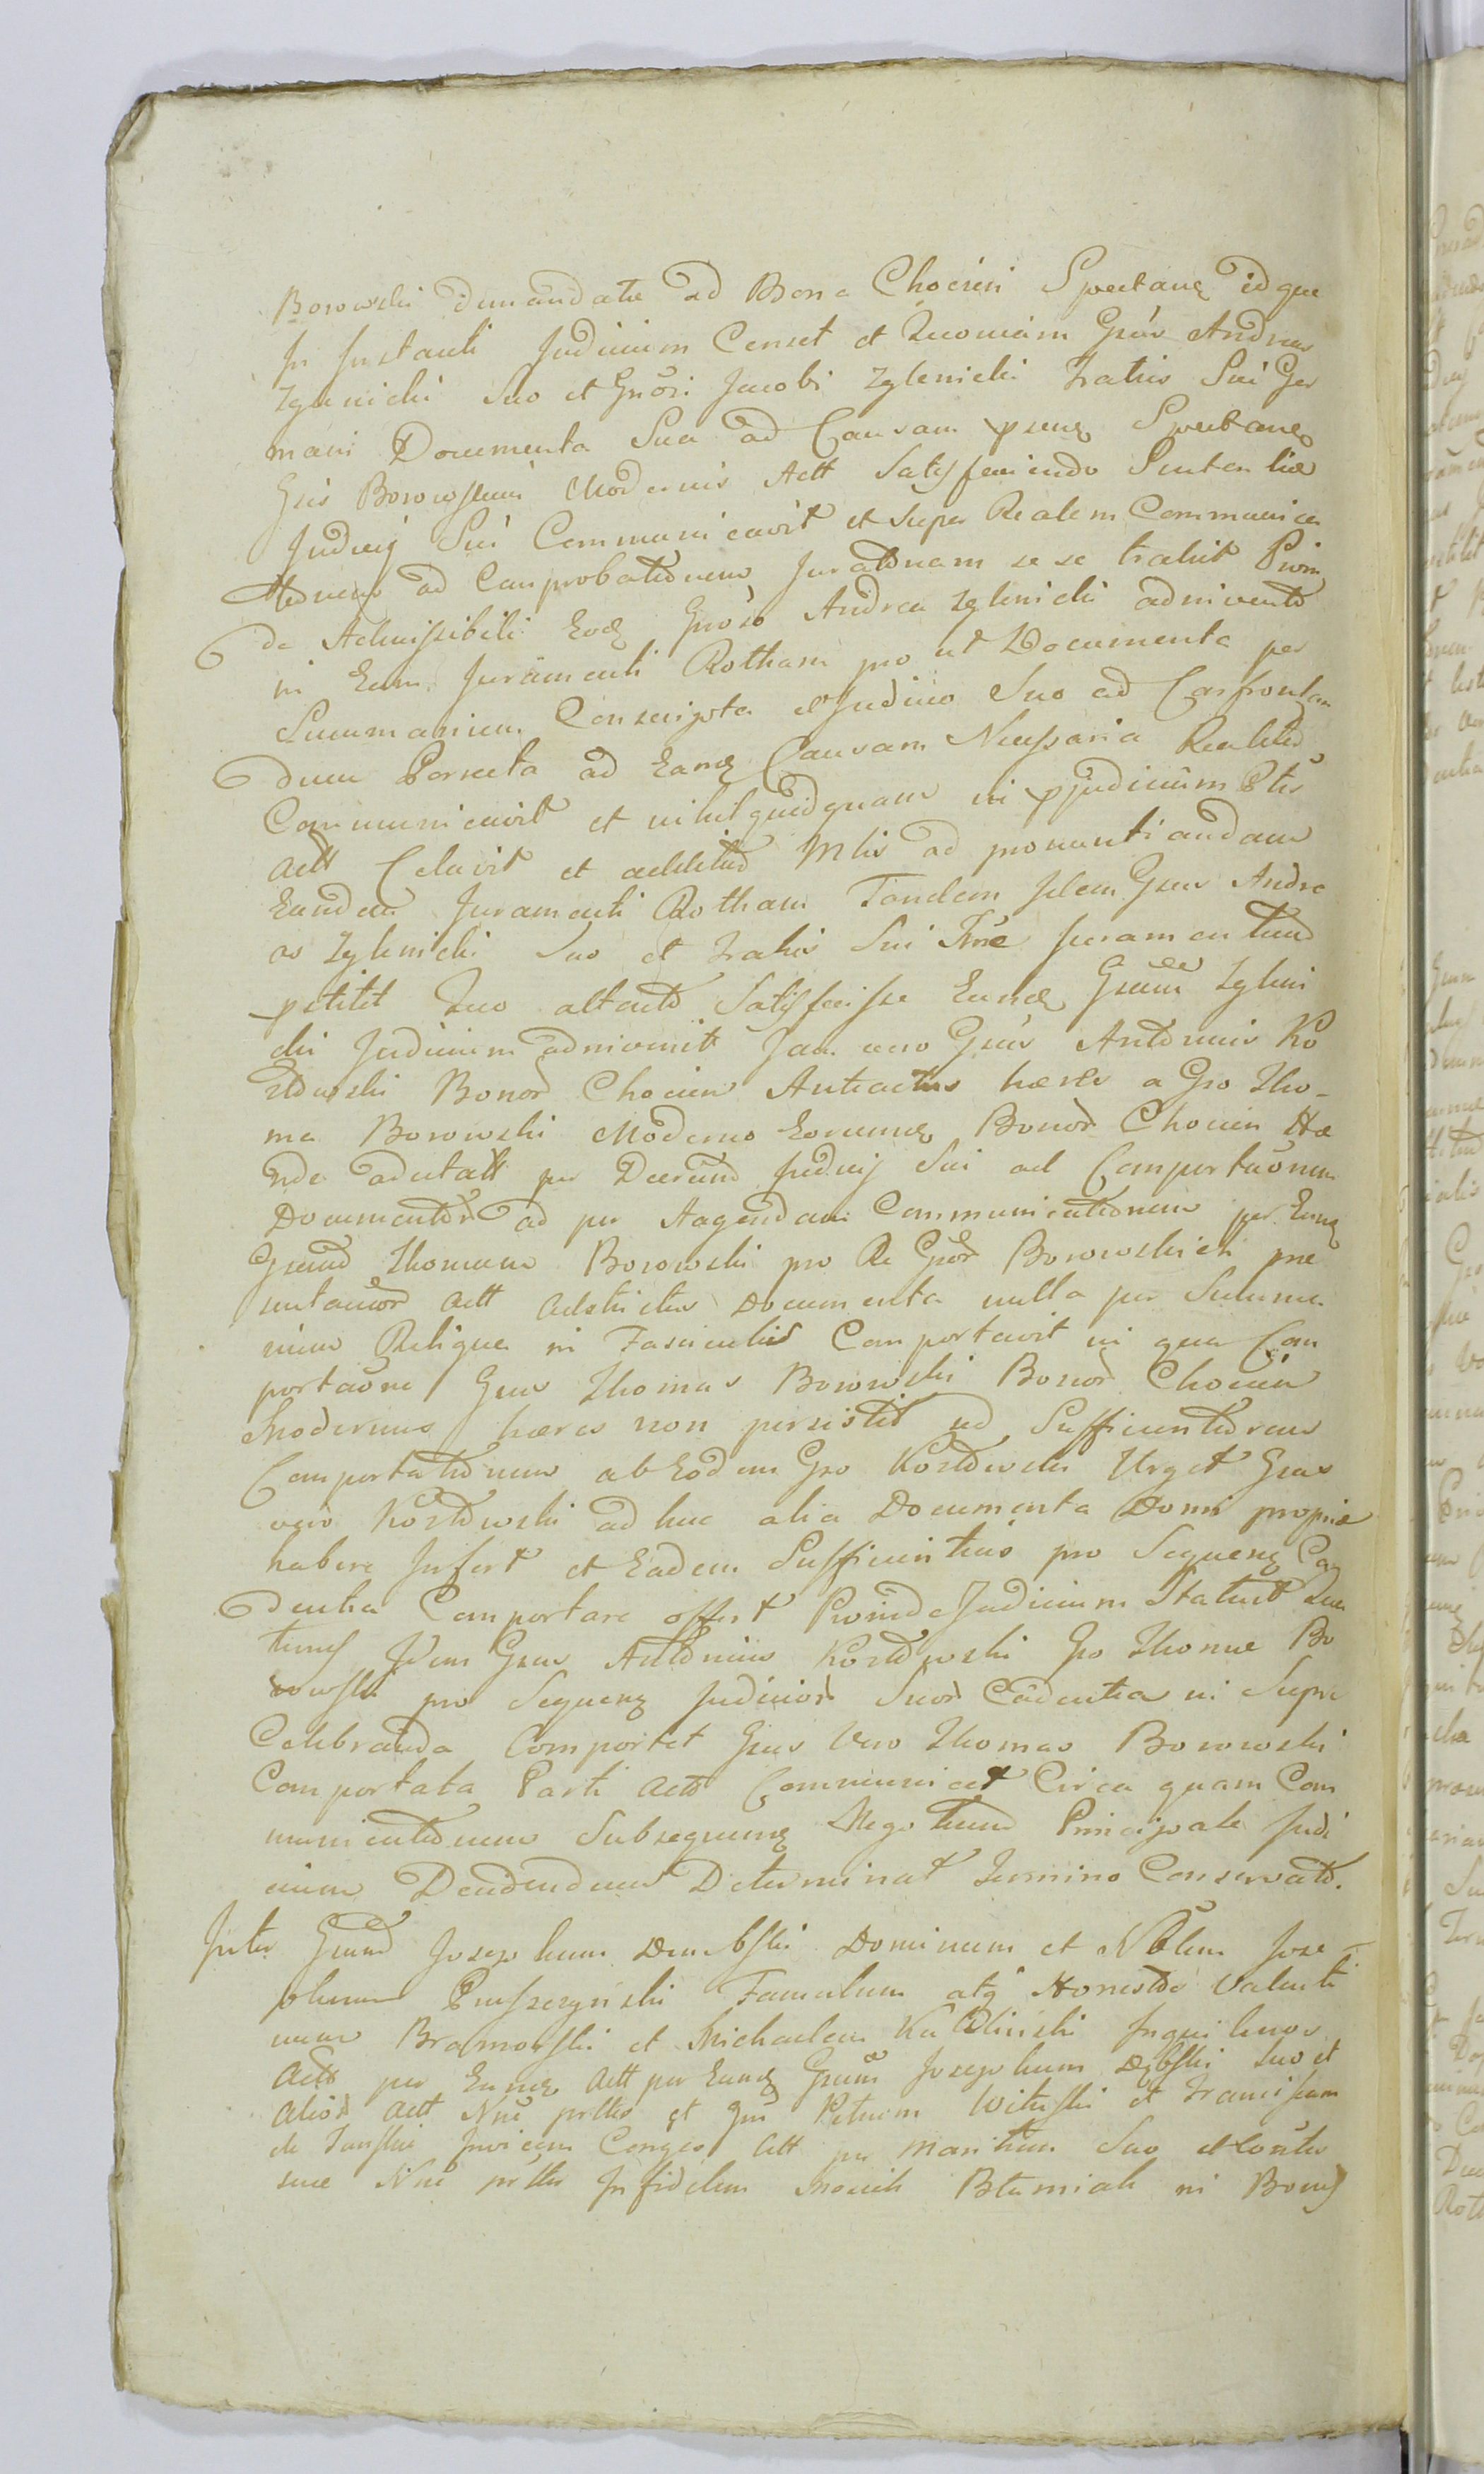 Borowski demandatæ ad Bona Chociun Spectanę idque
In Instanti Judicium Censet et Quoniam Gsus Andreas
Zglenicki Suo et Gnosi Jacobi Zglenicki Fratris Sui Ger
mani Documenta Sua ad Causam psenę Spectanę
Gsis Borowskim Modernis Actt Satisfaciendo Sententiæ
Judicij Sui Communicavit et super Realem Communica
tionem ad Comprobationem Juratoriam se se trahit Proin
de Admissibili Eodę Gnoso Andrea Zglenicki adinvento
in Eam Juramenti Rotham pro ut Documenta per
Summarium Conscripta et Judicio Suo ad Confrontan
dum Porrecta ad Eamę Causam Necessaria Realiter
Communicavit et nihil quidquam in pjudicium Ptis
Actt Celavit et addito Mlis ad pronuntiandam
Eandem Juramenti Rotham Tandem Idem Gsus Andre
as Zglenicki Suo et Fratris Sui Nne Juramentum
pstitit Quo attento Satisfecisse Eundę Gsum Zgleni
cki Judicium adinvenit Jam vero Gsus Antonius Ko
stowski Bonor Chociun Anteactus hæres a Gso Tho-
ma Borowski Moderno Eorumę Bonor Chociun Hæ
rede adcitatt per Decretum Judicij Sui ad Comportaonem
Documentor ad per Communicationem per Eunę
Gsum Thomam Borowski pro Re Gsor Borowskich præ
sentaneor Actt Adstrictus Documenta nulla per Summa
rium Reliqua in Fasciculis Comportavit in qua Com
portaone Gsus Thomas Borowski Bonor Chociun
Modernus hæres non persistit ad Sufficientiorem
Comportationem ab Eodem Gso Kostowski Urget Gsus
vero Kostowski ad huc alia Documenta Domi propriæ
habere Infert et Eadem Sufficientius pro Sequenę Ca
dentia Comportare offert Proinde Judicium Statuit Qua
tenus Idem Gsus Antonius Kostowski Gso Thomæ Bo
rowski pro Sequenę Judicior Suor Cadentia in Supra
Celebranda Comportet Gsus Vero Thomas Borowski
Comportata Parti Actt Communicet Circa quam Com
municationem Subsequenę Negotium Principale Judi
cium Decidendum Determinat Termino Conservato.
Inter Gsum Josephum Dembski Dominum et Nobilem Jose
phum Prusszynski Famulum atq Honestos Valenti
num Bramorski et Michaelem Kaldinski Inquilinos
Actt per Eunę Actt per Eunę Gsum Josephum Dębski Suo et
Alior Actt Nne prtto et Gm Petrum Witulski et Franciscam
de Tanskie Invicem Conges Actt per Maritum Suo et Consortis
suæ Nne prtto Infidelem Moisich Btamiah in Bonis